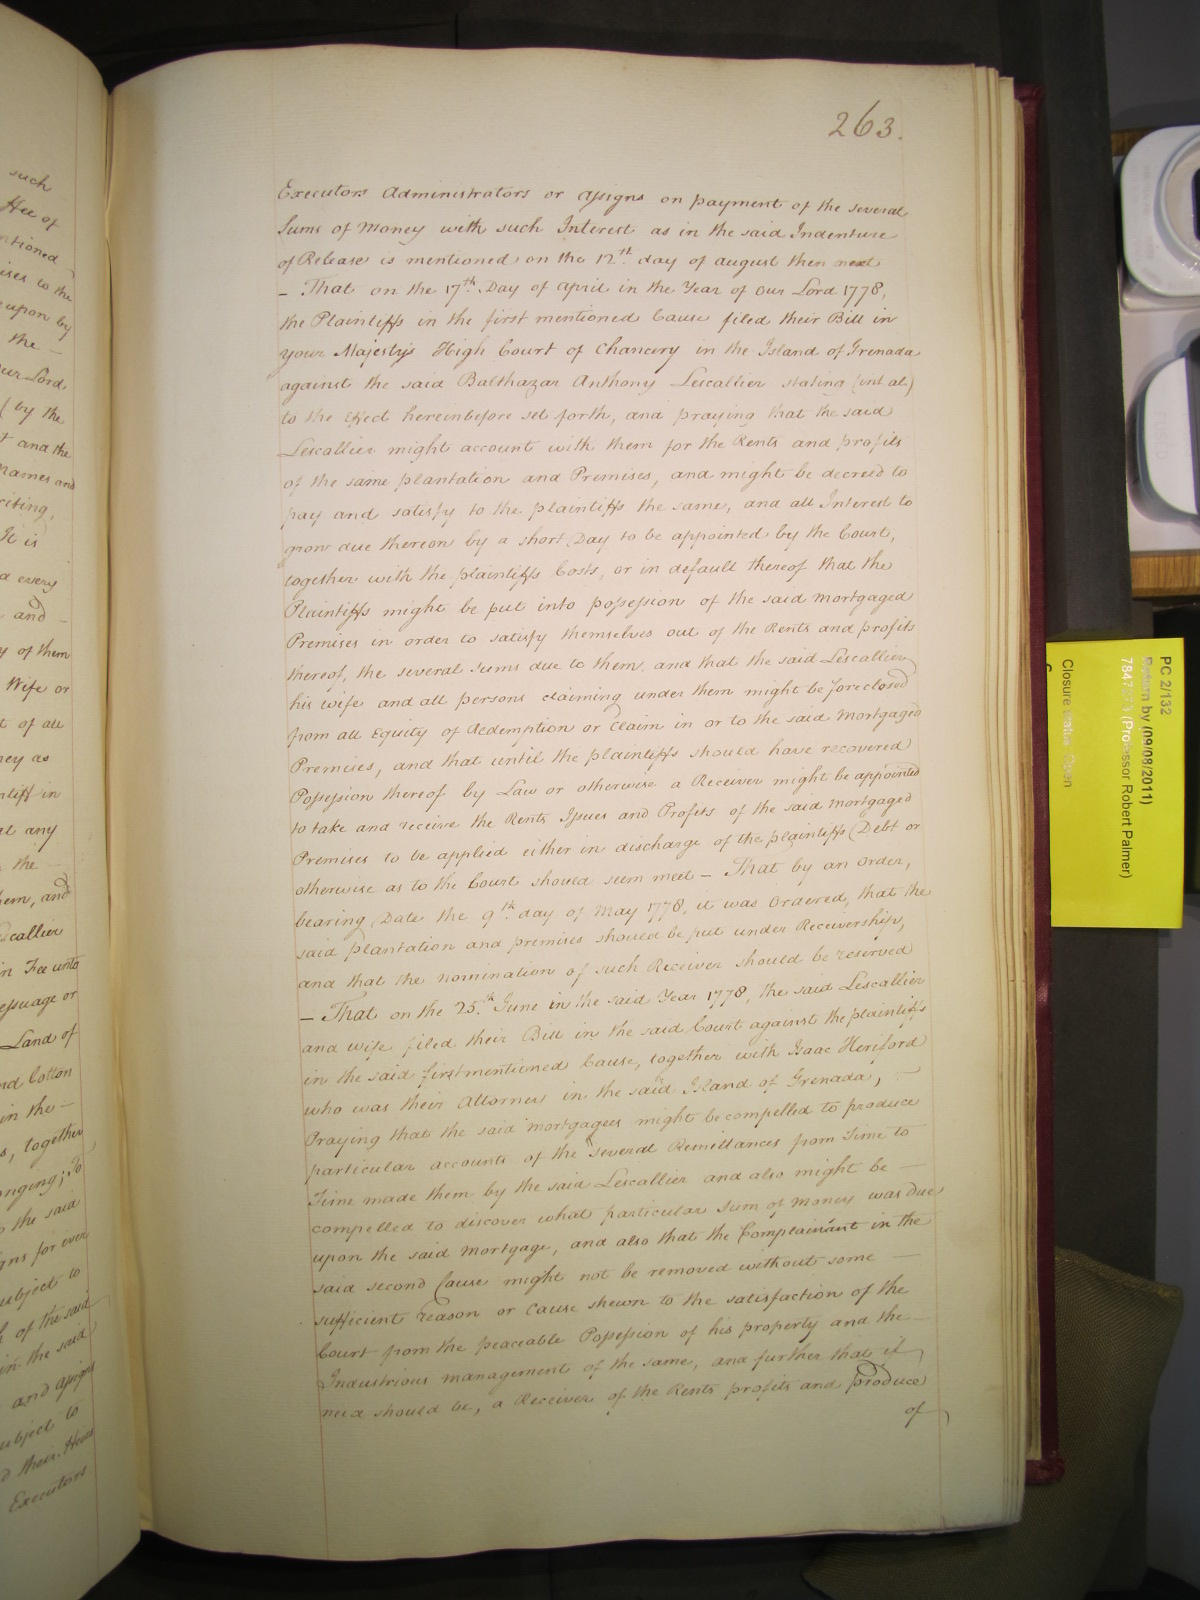 263.
Executors Administrators or assigns on payment of the several
Sums of Money with such Interest as in the said Indenture
of Release is mentioned on the 12th day of august then next
– That on the 17th Day of april in the Year of our Lord 1778,
the Plaintiffs in the first mentioned Cause filed their Bill in
your Majestys High Court of Chancery in the Island of Grenada
against the said Balthazar Anthony Lescallier stating (int al)
to the Effect hereinbefore set forth, and praying that the said
Lescallier might account with them for the Rents and profits
of the same plantation and Premises, and might be decreed to
pay and satisfy to the plaintiffs the same, and all Interest to
grow due thereon by a short Day to be appointed by the Court,
together with the plaintiffs Costs, or in default thereof that the
Plaintiffs might be put into possession of the said mortgaged
Premises in order to satisfy themselves out of the Rents and profits
thereof, the several sums due to them, and that the said Lescallier
his wife and all persons claiming under them might be foreclosed
from all Equity of Redemption or Claim in or to the said Mortgaged
Premises, and that until the plaintiffs should have recovered
Possession thereof by Law or otherwise a Receiver might be appointed
to take and receive the Rents Issues and Profits of the said mortgaged
Premises to be applied either in discharge of the plaintiffs Debt or
otherwise as to the Court should seem meet – That by an order,
bearing Date the 9th day of May 1778, it was ordered, that the
said plantation and premises should be put under Receivership,
and that the nomination of such Receiver should be reserved
– That on the 25th June in the said Year 1778, the said Lescallier
and wife filed their Bill in the said Court against the plaintiffs
in the said firstmentioned Cause, together with Isaac Horsford
who was their Attorney in the said Island of Grenada, –
Praying that the said mortgagees might be compelled to produce
particular accounts of the several Remittances from Time to
Time made them by the said Lescallier and also might be –
compelled to discover what particular Sum of Money was due
upon the said Mortgage, and also that the Complainant in the
said second Cause might not be removed without some –
sufficient reason or Cause shewn to the satisfaction of the
Court from the peaceable Possession of his property and the –
Industrious management of the same, and further that if
need should be, a Receiver of the Rents profits and produce
of
such
Fee of
ntioned
ises to the
upon by
the –
ur Lord
by the
and the
names and
riting,
It is
every
and –
y of them
Wife or
t of all
ney as
ntiff in
at any
the –
hem, and
scallier
in Fee unto
essuage or
Land of
nd Cotton
in the –
s, together
onging; To
the said
gns for ever
ubject to
of the said
in the said
and assigns
ubject to
their Heirs
Executors
PC 2/132
Return by (09/08/2011)
(Professor Robert Palmer)
Closure status: Open